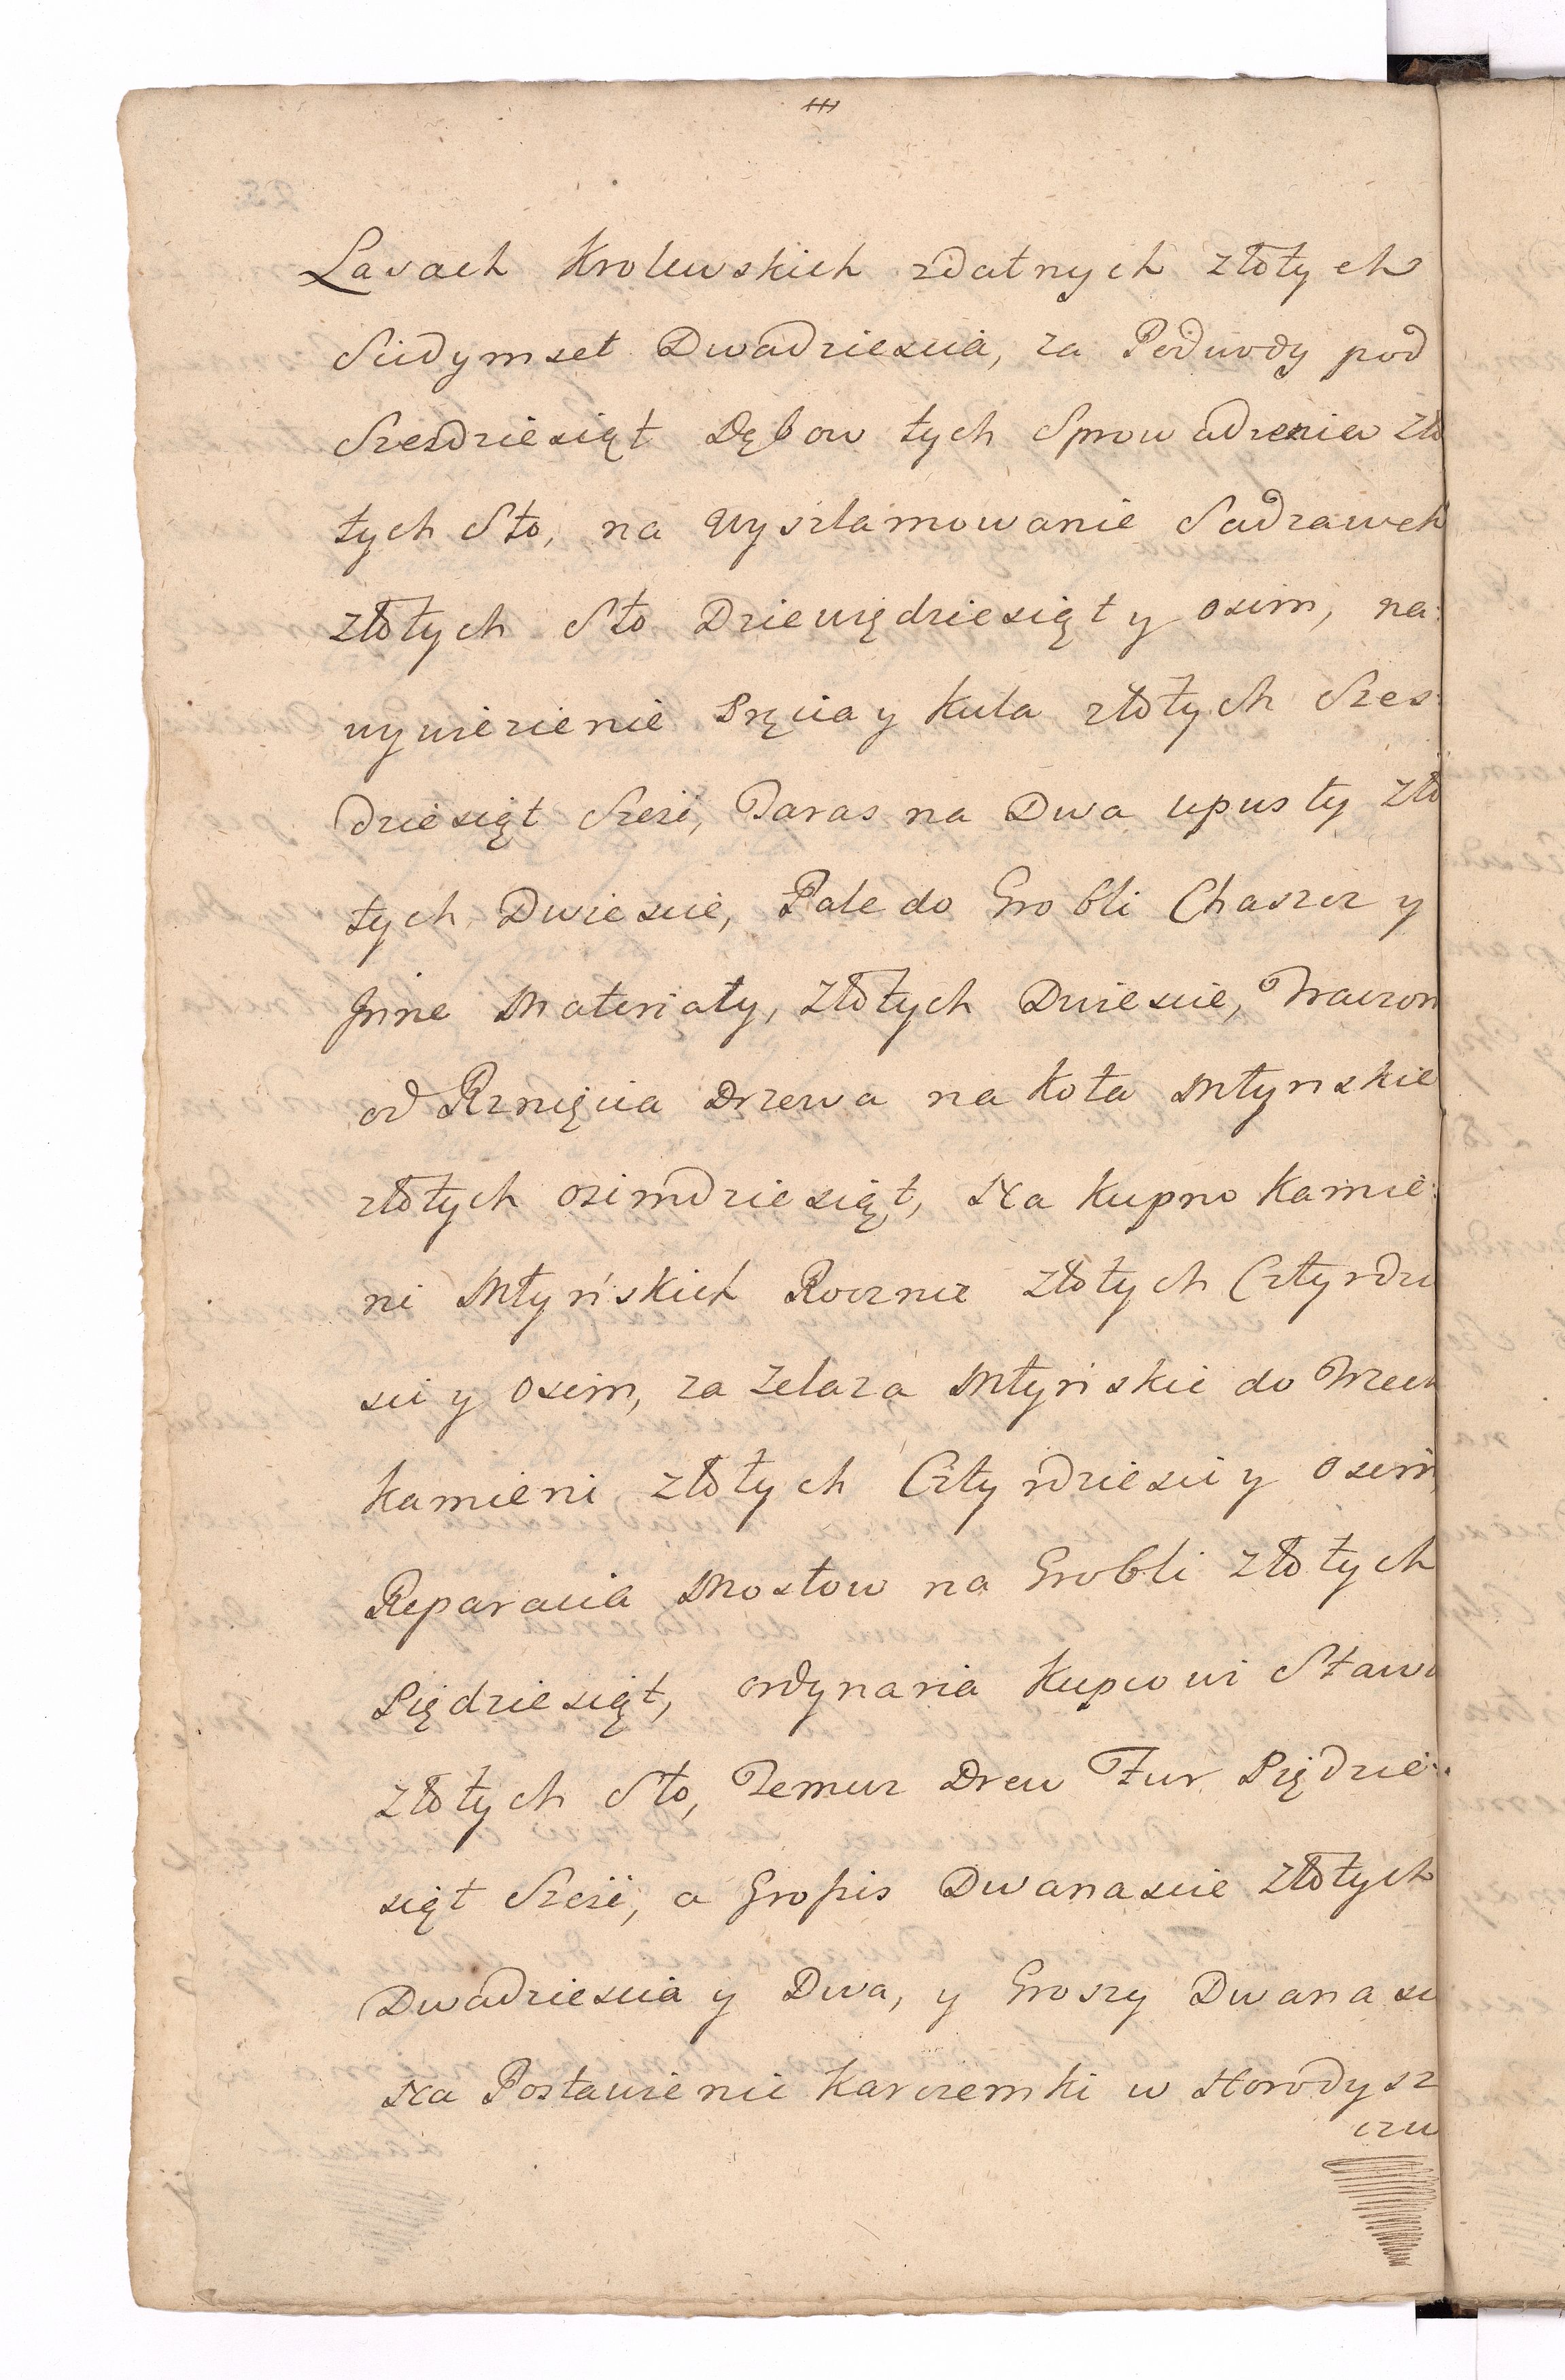 Lasach Krolewskich zdatnych złotych
Siedymset Dwadziescia, za Podwody pod
Szesdziesiąt Dębow tych Sprowadzenia zło
tych Sto, na wyszlamowanie Sadzawek
złotych Sto Dziewiędziesiąt y osim, na:
wywiezienie Pręcia y Kula złotych Szes:
dziesiąt Sześć, Taras na Dwa upusty zło
tych Dwiescie, Pale do Grobli Chaszcz y
Jnne Materiały, złotych Dwiescie, Traczom
od Rznięcia Drzewa na Koła Młynskie
złotych osimdziesiąt, Na Kupno Kamie:
ni Młyńskich Rocznie złotych Cztyrdzie
sci y Osim, za Zelaza Młyńskie do Trzech
Kamieni złotych Cztyrdziesci y Osim,
Reparacia Mostow na Grobli złotych
Piędziesiąt, ordynaria Kupcowi Stawu
złotych Sto, Temuz Drew Fur Piędzie:
siąt Sześć, a Groszis Dwanascie złotych
Dwadziescia y Dwa, y Groszy Dwanasci
Na Postawienie Karczemki w Horodysz
czu